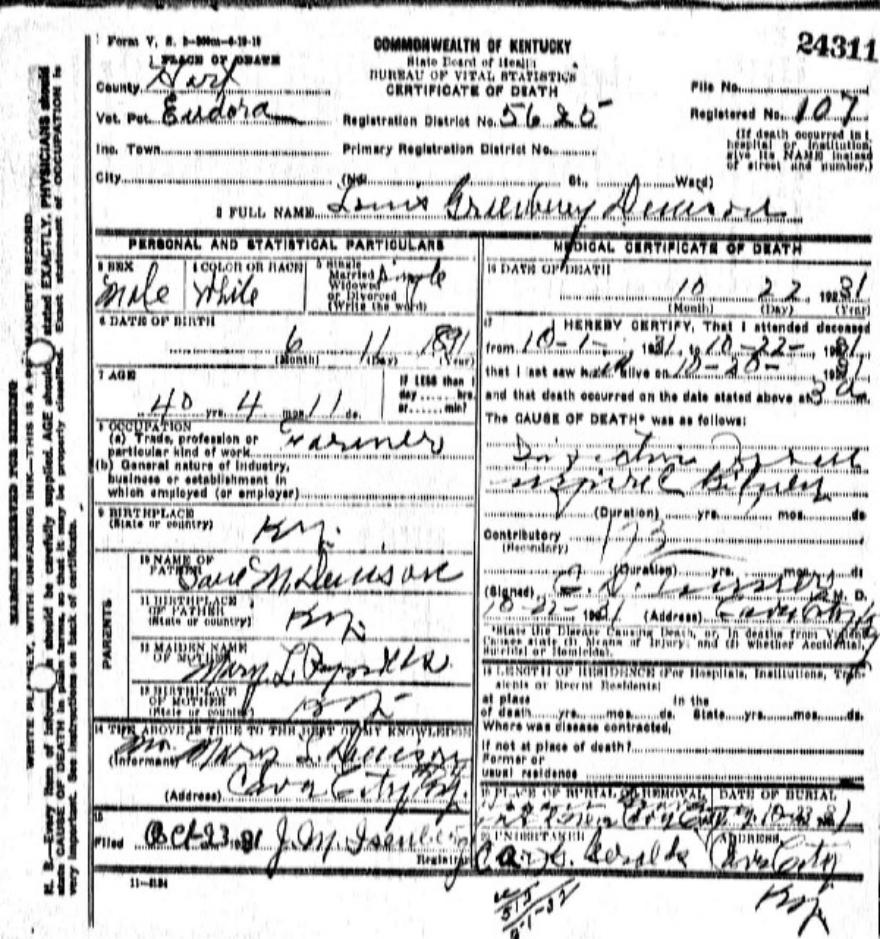 Form V. S.
24311
COMMONWEALTH OF KENTUCKY
State Board of Health
BUREAU OF VITAL STATISTICS
CERTIFICATE OF DEATH
1 PLACE OF DEATH
County Hart
Vot. Pct. Eudora
Inc. Town
City
Registration District No. 5625
Primary Registration District No.
(No. St., Ward)
File No.
Registered No. 107
(If death occurred in
hospital or institution,
give its NAME instead
of street and number.)
2 FULL NAME Denison
PERSONAL AND STATISTICAL PARTICULARS
3 SEX
Male
4 COLOR OR RACE
White
5 Single
Married
Widowed
or Divorced
(Write the word)
Single
6 DATE OF BIRTH
6 11 1891
(Month) (Day) (Year)
7 AGE
40 yrs. 4 mos. 11 ds.
If LESS than 1
day hrs.
or min?
8 OCCUPATION
(a) Trade, profession or
particular kind of work Farmer
(b) General nature of industry,
business or establishment in
which employed (or employer)
9 BIRTHPLACE
(State or country)
Ky.
PARENTS
10 NAME OF
FATHER
11 BIRTHPLACE
OF FATHER
(State or country)
Ky.
12 MAIDEN NAME
OF MOTHER
Mary L.
13 BIRTHPLACE
OF MOTHER
(State or country)
Ky.
14 THE ABOVE IS TRUE TO THE BEST OF MY KNOWLEDGE
(Informant) Mary L. Denison
(Address) Cave City Ky.
15
Filed Oct-23 1931 J. M. Isenberg
Registrar
11-6184
MEDICAL CERTIFICATE OF DEATH
16 DATE OF DEATH
10 22 1931
(Month) (Day) (Year)
17 I HEREBY CERTIFY, That I attended deceased
from 10-1- 1931, to 10-22- 1931
that I last saw alive on 10-20- 1931
and that death occurred on the date stated above at 3 a m.
The CAUSE OF DEATH* was as follows:
(Duration) yrs. mos. ds
Contributory
(Secondary)
(Duration) yrs. mos. ds
(Signed) M. D.
10-22- 1931 (Address) Cave City Ky
*State the Disease Causing Death, or, in deaths from Violent
Causes state (1) Means of Injury; and (2) whether Accidental,
Suicidal or Homicidal.
18 LENGTH OF RESIDENCE (For Hospitals, Institutions, Transients or Recent Residents)
at place In the
of death yrs. mos. ds. State yrs. mos. ds.
Where was disease contracted,
If not at place of death?
Former or
usual residence
19 PLACE OF BURIAL OR REMOVAL
DATE OF BURIAL
20 UNDERTAKER
ADDRESS
Cave City
Ky.
MARGIN RESERVED FOR BINDING
WRITE PLAINLY, WITH UNFADING INK—THIS IS A PERMANENT RECORD
N. B.—Every item of information should be carefully supplied. AGE should be stated EXACTLY. PHYSICIANS should
state CAUSE OF DEATH in plain terms, so that it may be properly classified. Exact statement of OCCUPATION is
very important. See instructions on back of certificate.